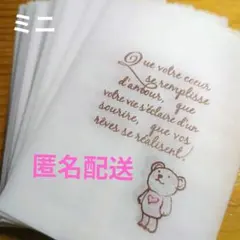 ミニ
Que votre coeur
se remplisse
d'amour, que
votre vie s'éclaire d'un
sourire, que vos
rêves se réalisent!
匿名配送